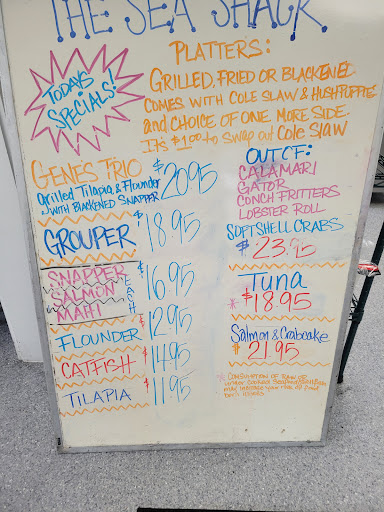 THE SEA SHACK
TODAYS
SPECIALS!
PLATTERS:
GRILLED, FRIED OR BLACKENED
COMES WITH COLE SLAW & HUSHPUPPIE
and CHOICE OF ONE MORE SIDE.
ITS $1.00 to SWAP out COLE SLAW
GENES TRIO $20.95
Grilled Tilapia & Flounder
WITH BLACKENED SNAPPER
GROUPER $18.95
SNAPPER
SALMON
MAHI
EACH
$16.95
FLOUNDER $12.95
CATFISH $14.95
TILAPIA $11.95
OUT OF:
CALAMARI
GATOR
CONCH FRITTERS
LOBSTER ROLL
SOFTSHELL CRABS
$23.95
Tuna
*$18.95
Salmon & Crabcake
$21.95
* CONSUMPTION OF RAW OR
under cooked
may increase your risk of food
born